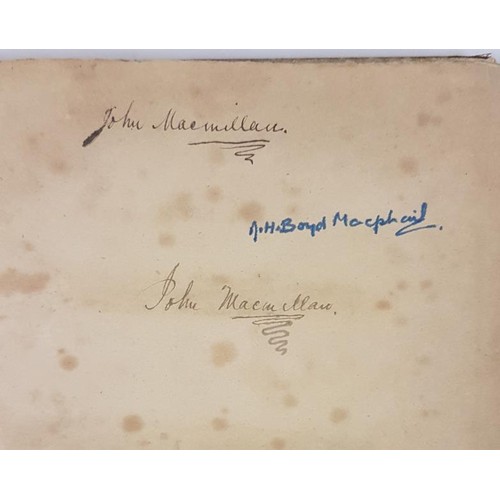 John Macmillan.
J.H. Boyd Macphail.
John Macmillan.